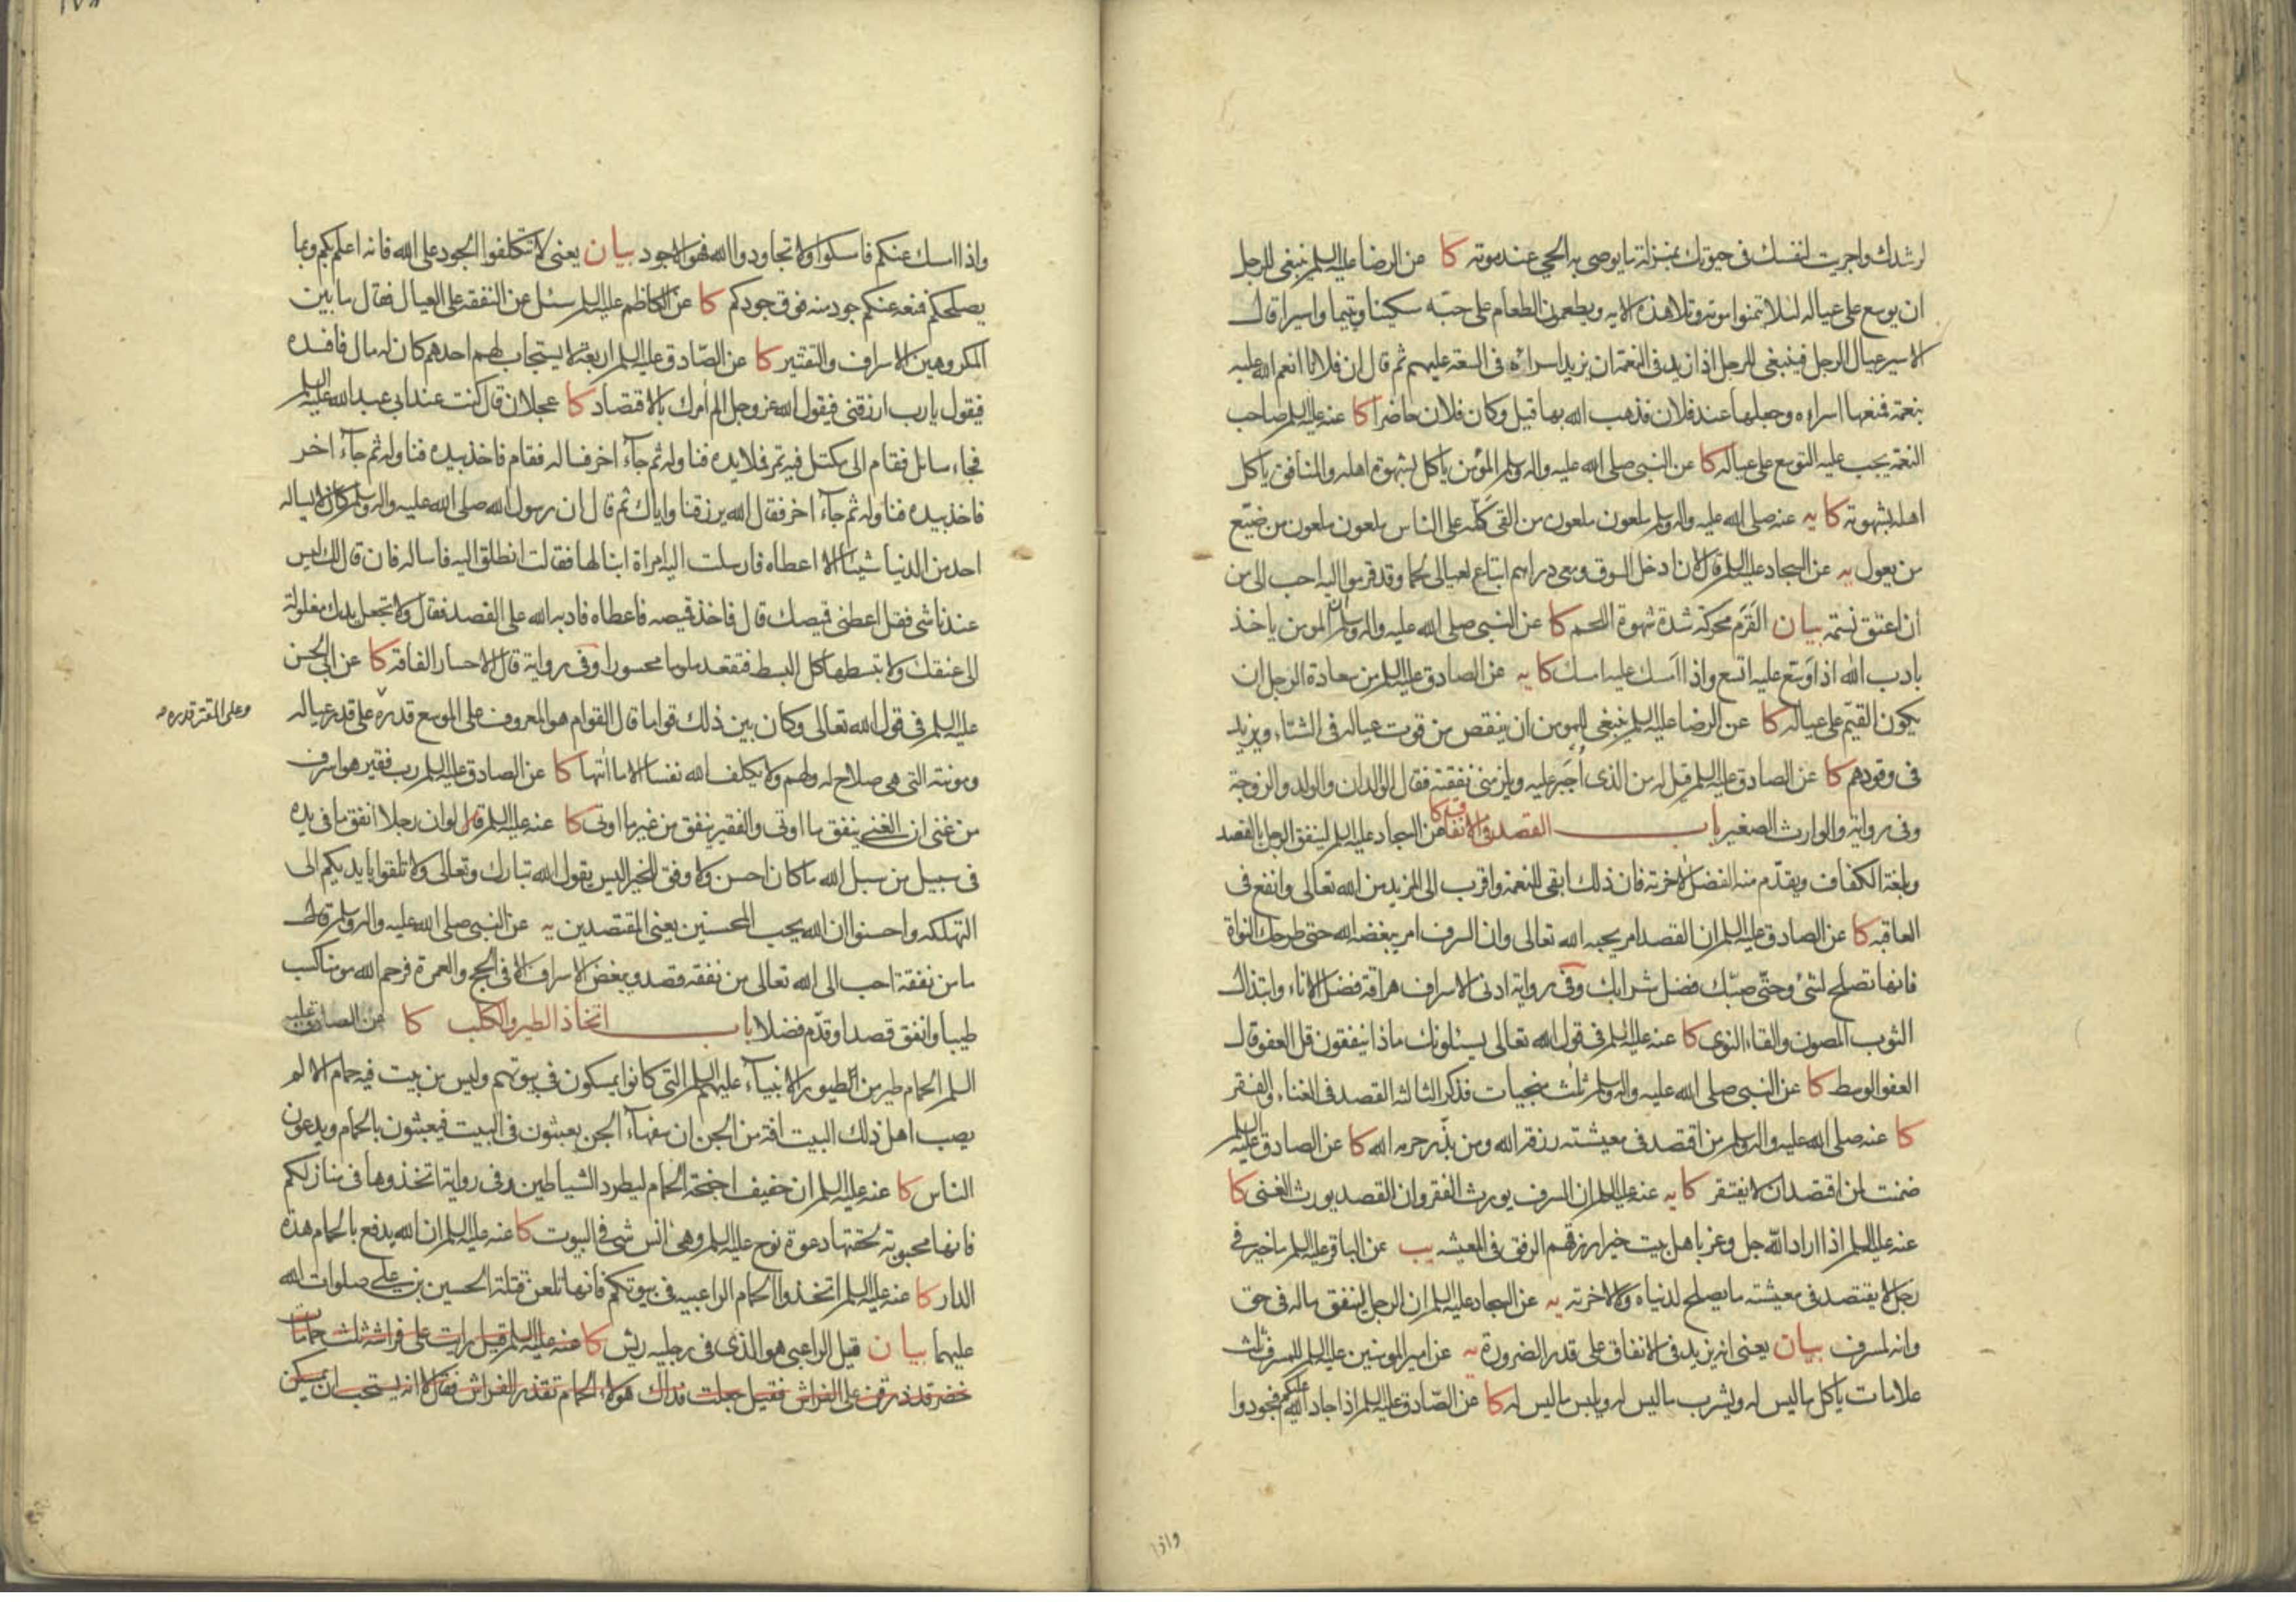 لرشدك واجريت لنفسك في حيوتك بمنزلة ما يوصي به الحي عند موته كا عن الرضا عليه السلم ينبغي للرجل
ان يوسع على عياله لئلا يتمنوا موته وتلا هذه الايه ويطعمون الطعام على حبه مسكينا ويتيما واسيرا قال
الاسير عيال الرجل فينبغي للرجل اذا زيد في النعمة ان يزيد اسراءه في السعة عليهم ثم قال ان فلانا انعم الله عليه
بنعمة فمنعها اسراءه وجعلها عند فلان فذهب الله بها قيل وكان فلان حاضرا كا عنه عليه السلم صاحب
النعمة يجب عليه التوسع على عياله كا عن النبي صلى الله عليه واله وسلم المؤمن ياكل بشهوة اهله والمنافق ياكل
اهله بشهوته كا يه عنه صلى الله عليه واله وسلم ملعون ملعون من القى كله على الناس ملعون ملعون من ضيّع
من يعول يه عن السجاد عليه السلم قال لان ادخل السوق ومعي دراهم ابتاع لعيالي لحما وقد قرموا اليه احب الي من
ان اعتق نسمة بيان القَرَم محركة شدة شهوة اللحم كا عن النبي صلى الله عليه واله وسلم ان المومن ياخذ
بادب الله اذا اوسع عليه اتسع واذا امسك عليه امسك كا يه عن الصادق عليه السلم من سعادة الرجل ان
يكون القيّم على عياله كا عن الرضا عليه السلم ينبغي للمومن ان ينقص من قوت عياله في الشتاء ويزيد
في وقودهم كا عن الصادق عليه السلم قيل له من الذي اُجبَر عليه ويلزمني نفقته فقال الوالدان والولد والزوجة
وفي رواية والوارث الصغير باب القصد في الانفاق كا عن السجاد عليه السلم لينفق الرجل بالقصد
وبلغة الكفاف ويقدّم منه الفضل لاخرته فان ذلك ابقى للنعمة واقرب الى المزيد من الله تعالى وانفع في
العاقبه كا عن الصادق عليه السلم ان القصد امر يحبه الله تعالى وان السرف امر يبغضه الله حتى طرحك النواة
فانها تصلح لشئ وحتّى صبّك فضل شرابك وفي رواية ادنى الاسراف هراقة فضل الاناء وابتذال
الثوب المصون والقاء النوى كا عنه عليه السلم في قول الله تعالى يسئلونك ماذا ينفقون قل العفو قال
العفو الوسط كا عن النبي صلى الله عليه واله وسلم ثلث منجيات فذكر الثالثة القصد في الغناء والفقر
كا عنه صلى الله عليه واله وسلم من اقتصد في معيشته رزقه الله ومن بذّر حرمه الله كا عن الصادق عليه السلم
ضمنت لمن اقتصد ان لا يفتقر كا يه عنه عليه السلم ان السرف يورث الفقر وان القصد يورث الغنى كا
عنه عليه السلم اذا اراد الله جل وعز باهل بيت خيرا رزقهم الرفق في المعيشه يب عن الباقر عليه السلم ما خير في
رجل لا يقتصد في معيشته ما يصلح لدنياه ولا لاخرته يه عن السجاد عليه السلم ان الرجل لينفق ماله في حق
وانه لمسرف بيان يعني انه يزيد في الانفاق على قدر الضرورة يه عن امير المومنين عليه السلم للمسرف ثلث
علامات ياكل ما ليس له ويشرب ما ليس له ويلبس ما ليس له كا عن الصّادق عليه السلم اذا جاد الله عليكم فجودوا
واذا
واذا امسك عنكم فامسكوا ولا تجاودوا الله فهو الاجود بيان يعني لا تتكلفوا الجود على الله فانه اعلم بكم وبما
يصلحكم فمنعه عنكم جود منه فوق جودكم كا عن الكاظم عليه السلم سئل عن النفقة على العيال فقال ما بين
المكروهين الاسراف والتقتير كا عن الصّادق عليه السلم اربعة لا يستجاب لهم احدهم كان له مال فافسده
فيقول يا رب ارزقني فيقول الله عز وجل الم امرك بالاقتصاد كا عجلان قال كنت عند ابي عبد الله عليه السلم
فجاء سائل فقام الى مكتل فيه تمر فملا يده فناوله ثم جاء آخر فساله فقام فاخذ بيده فناوله ثم جاء آخر
فاخذ بيده فناوله ثم جاء آخر فقال الله يرزقنا واياك ثم قال ان رسول الله صلى الله عليه واله وسلم كان لا يساله
احد من الدنيا شيئا الا اعطاه فارسلت اليه امراة ابنا لها فقالت انطلق اليه فاساله فان قال لك ليس
عندنا شئ فقل اعطني قميصك قال فاخذ قميصه فاعطاه فادبه الله على القصد فقال ولا تجعل يدك مغلولة
الى عنقك ولا تبسطها كل البسط فتقعد ملوما محسورا وفي رواية قال الاحسار الفاقة كا عن ابي الحسن
عليه السلم في قول الله تعالى وكان بين ذلك قواما قال القوام هو المعروف على الموسع قدره على قدر عياله
وعلى المقتر قدره
ومونته التي هي صلاح له ولهم ولا يكلف الله نفسا الا ما اتيها كا عن الصادق عليه السلم رب فقير هو اسرف
من غني ان الغني ينفق مما اوتي والفقير ينفق من غير ما اوتي كا عنه عليه السلم قال لو ان رجلا انفق ما في يده
في سبيل من سبل الله ما كان احسن ولا وفق للخير اليس يقول الله تبارك وتعالى ولا تلقوا بايديكم الى
التهلكه واحسنوا ان الله يحب المحسنين يعني المقتصدين يه عن النبي صلى الله عليه واله وسلم قال
ما من نفقة احب الى الله تعالى من نفقة قصد ويبغض الاسراف الا في الحج والعمرة فرحم الله مومنا كسب
طيبا وانفق قصدا وقدّم فضلا باب اتخاذ الطير والكلب كا عن الصادق عليه
السلم الحمام طير من الطيور الانبياء عليهم السلم التي كانوا يمسكون في بيوتهم وليس من بيت فيه حمام الا لم
يصب اهل ذلك البيت افة من الجن ان سفهاء الجن يعبثون في البيت فيعبثون بالحمام ويدعون
الناس كا عنه عليه السلم ان حفيف اجنحة الحمام ليطرد الشياطين وفي رواية اتخذوها في منازلكم
فانها محبوبة لحقتها دعوة نوح عليه السلم وهي انس شئ في البيوت كا عنه عليه السلم ان الله يدفع بالحمام هدة
الدار كا عنه عليه السلم اتخذوا الحمام الراعبيه في بيوتكم فانها تلعن قتلة الحسين بن علي صلوات الله
عليهما بيان قيل الراعبي هو الذي في رجليه ريش كا عنه عليه السلم قيل رايت على فراشه ثلث حمامات
خضر قد ذرقن على الفراش فقيل جعلت فداك هولاء الحمام تقذر الفراش فقال لا انه يستحب ان يمسكن